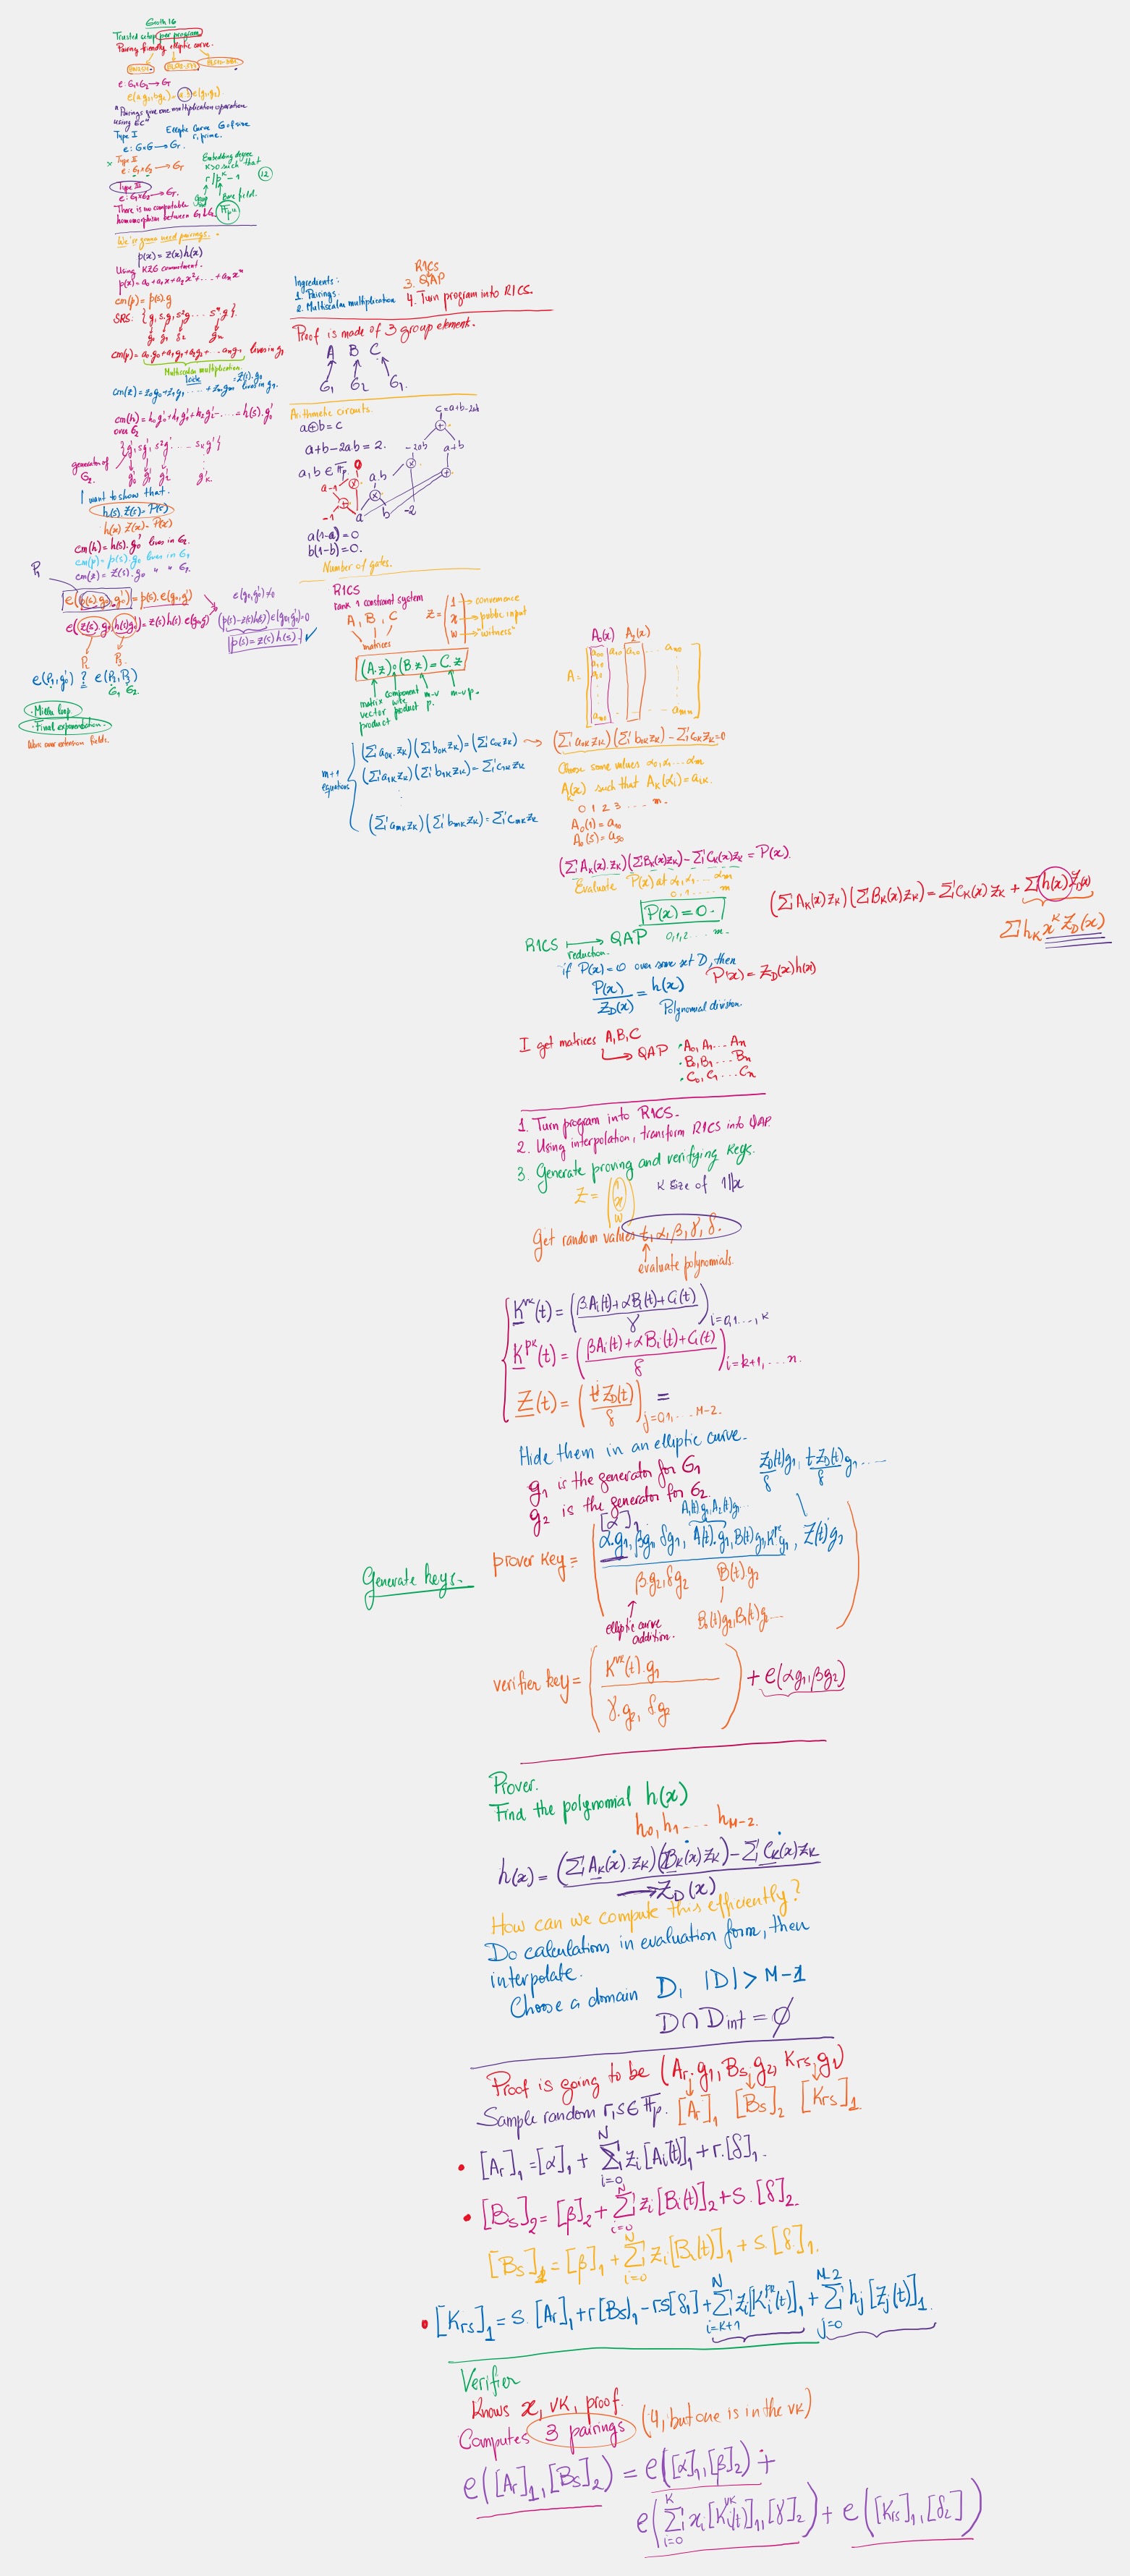 Groth 16
Trusted setup per program
Pairing friendly elliptic curve.
e: G₁×G₂ → G_T
e(a g₁, b g₂) = a.b e(g₁,g₂).
"Pairings give one multiplication operation
using EC"
Type I
Elliptic Curve G of size
r, prime.
e: G×G → G_T.
× Type II
e: G₁×G₂ → G_T
Embedding degree
K>0 such that
r | p^K - 1
12
Type III
e: G₁×G₂ → G_T.
Base field.
There is no computable
homomorphism between G₁ & G₂.
We're gonna need pairings.
p(x) = z(x) h(x)
Using KZG commitment.
p(x) = a₀ + a₁x + a₂x² + ... + aₙxⁿ
cm(p) = p(s).g
SRS: {g, s.g, s²g ... sⁿg}.
g₀ g₁ g₂ gₙ
cm(p) = a₀.g₀ + a₁g₁ + a₂g₂ + ... aₙgₙ lives in g₁
Multiscalar multiplication.
= z(s).g₀
cm(z) = z₀g₀ + z₁g₁ ... + zₘgₘ lives in g₁.
cm(h) = h₀g₀' + h₁g₁' + h₂g₂' ... = h(s).g₀'
over G₂
{g', sg', s²g' ... sₖg'}
generator of
G₂.
g₀' g₁' g₂' g'ₖ.
I want to show that.
h(s).z(s) = P(s)
h(x).z(x) = P(x)
cm(h) = h(s).g₀' lives in G₂.
cm(p) = p(s).g₀ lives in G₁
cm(z) = z(s).g₀ " " G₁.
P₁
e(p(s).g₀, g₀') = p(s).e(g₀,g₀')
e(g₀,g₀') ≠ 0
e(z(s).g₀, h(s)g₀') = z(s)h(s).e(g₀g₀')
(p(s)-z(s)h(s)) e(g₀,g₀') = 0
p(s) = z(s)h(s) ✓
P₂ P₃
e(P₁,g₀') ? = e(P₂,P₃)
G₁ G₂
· Miller loop.
· Final exponentiation.
Work over extension fields.
Ingredients:
1. Pairings.
2. Multiscalar multiplication
R1CS
3. QAP
4. Turn program into R1CS.
Proof is made of 3 group element.
A B C
G₁ G₂ G₁.
Arithmetic circuits.
a⊕b = c
c = a+b-2ab
a+b-2ab = 2.
-2ab
a+b
a, b ∈ F_p.
0
a-1
a.b
-1
a
b
-2
a(1-a) = 0
b(1-b) = 0.
Number of gates.
R1CS
rank 1 constraint system
A, B, C
matrices
z = (1 → convenience
x → public input
w → "witness")
(A.z)∘(B.z) = C.z
matrix
vector
product
component
wise
product
m-v
p.
m-v p.
m+1
equations
(Σ a₀ₖ.zₖ)(Σ b₀ₖzₖ) = (Σ c₀ₖzₖ)
(Σ a₁ₖzₖ)(Σ b₁ₖzₖ) = Σ c₁ₖzₖ
(Σ aₘₖzₖ)(Σ bₘₖzₖ) = Σ cₘₖzₖ
A₀(x) A₂(x)
A =
(Σ a₀ₖzₖ)(Σ b₀ₖzₖ) - Σ c₀ₖzₖ = 0
Choose some values α₀, α₁ ... αₘ
Aₖ(x) such that Aₖ(αᵢ) = aᵢₖ.
0 1 2 3 ... m.
A₀(1) = a₁₀
A₀(5) = a₅₀
(Σ Aₖ(x).zₖ)(Σ Bₖ(x)zₖ) - Σ Cₖ(x)zₖ = P(x).
Evaluate P(x) at α₀, α₁ ... αₘ
0, 1 ... m
P(x) = 0.
0,1,2 ... m.
(Σ Aₖ(x)zₖ)(Σ Bₖ(x)zₖ) = Σ Cₖ(x)zₖ + Σ h(x)Z_D(x)
Σ hₖ xᵏ Z_D(x)
R1CS → QAP
reduction.
if P(x) = 0 over some set D, then
P(x)/Z_D(x) = h(x)
P(x) = Z_D(x)h(x)
Polynomial division.
I get matrices A, B, C
→ QAP
· A₀, A₁ ... Aₙ
· B₀, B₁ ... Bₙ
· C₀, C₁ ... Cₙ
1. Turn program into R1CS.
2. Using interpolation, transform R1CS into QAP
3. Generate proving and verifying keys.
Z = (1 x w)
K size of 1||x
Get random values t, α, β, γ, δ.
evaluate polynomials.
K^vk(t) = (βAᵢ(t)+αBᵢ(t)+Cᵢ(t) / γ) i=0,1...,K
K^pk(t) = (βAᵢ(t)+αBᵢ(t)+Cᵢ(t) / δ) i=k+1,...n.
Z(t) = (tʲ Z_D(t) / δ) j=0,1,...M-2. =
Hide them in an elliptic curve.
g₁ is the generator for G₁
g₂ is the generator for G₂.
Z_D(t)/δ g₁, t Z_D(t)/δ g₁ ...
[α]₁
A₁(t)g₁, A₂(t)g₁...
Generate keys.
prover key = (α.g₁, βg₁, δg₁, A(t).g₁, B(t)g₁, K^pk g₁, Z(t)g₁
βg₂, δg₂ B(t).g₂)
elliptic curve
addition.
B₀(t)g₂, B₁(t)g₂...
verifier key = (K^vk(t).g₁
γ.g₂, δg₂) + e(αg₁,βg₂)
Prover.
Find the polynomial h(x)
h₀, h₁ ... h_M-2.
h(x) = (Σ Aₖ(x).zₖ)(Σ Bₖ(x)zₖ) - Σ Cₖ(x)zₖ
→ Z_D(x)
How can we compute this efficiently?
Do calculations in evaluation form, then
interpolate.
Choose a domain D, |D| > M-1
D ∩ D_int = ∅
Proof is going to be (Ar.g₁, Bs.g₂, Krs.g₁)
Sample random r,s ∈ F_p. [Ar]₁ [Bs]₂ [Krs]₁
• [Ar]₁ = [α]₁ + Σ_{i=0}^{N} zᵢ[Aᵢ(t)]₁ + r.[δ]₁.
• [Bs]₂ = [β]₂ + Σ_{i=0}^{N} zᵢ[Bᵢ(t)]₂ + s.[δ]₂
[Bs]₁ = [β]₁ + Σ_{i=0}^{N} zᵢ[Bᵢ(t)]₁ + s.[δ]₁.
• [Krs]₁ = s.[Ar]₁ + r[Bs]₁ - rs[δ]₁ + Σ_{i=k+1}^{N} zᵢ[Kᵢ^pk(t)]₁ + Σ_{j=0}^{M-2} hⱼ[Zⱼ(t)]₁.
Verifier
Knows x, vk, proof.
Computes 3 pairings (4, but one is in the vk)
e([Ar]₁,[Bs]₂) = e([α]₁,[β]₂) +
e(Σ_{i=0}^{K} xᵢ[Kᵢ^vk(t)]₁,[γ]₂) + e([Krs]₁,[δ₂])